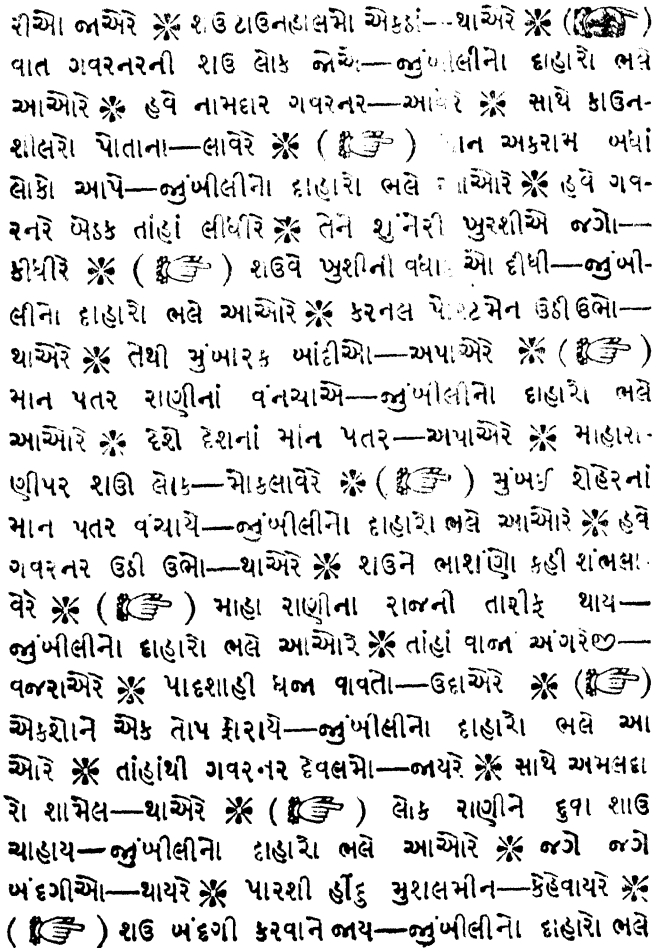 રીઓ જાએરે ❋ શઉ ટાઉનહાલમાં એકઠાં—થાએરે ❋ (☞)
વાત ગવરનરની શઉ લોક જોએ—જુંબીલીનો દાહારો ભલે
આઓરે ❋ હવે નામદાર ગવરનર—આવેરે ❋ સાથે કાઉન-
શીલરો પોતાના—લાવેરે ❋ (☞) અકરામ બધાં
લોકો આપે—જુંબીલીનો દાહારો ભલે આઓરે ❋ હવે ગવ-
રનરે બેઠક તાંહાં લીધીરે ❋ તેને શુંનેરી ખુરશીએ જગો—
કીધીરે ❋ (☞) શઉવે ખુશીની વધા ઓ દીધી—જુંબી-
લીનો દાહારો ભલે આઓરે ❋ કરનલ ઉઠી ઉભો—
થાએરે ❋ તેથી મુંબારક બાંદીઓ—અપાએરે ❋ (☞)
માન પતર રાણીનાં વંનચાએ—જુંબીલીનો દાહારો ભલે
આઓરે ❋ દેશે દેશનાં માંન પતર—અપાએરે ❋ માહારા-
ણીપર શઊ લોક—મોકલાવેરે ❋ (☞) મુંબઈ શેહેરનાં
માન પતર વંચાયે—જુંબીલીનો દાહારો ભલે આઓરે ❋ હવે
ગવરનર ઉઠી ઉભો—થાએરે ❋ શઉને ભાશંણો કહી શંભલા-
વેરે ❋ (☞) માહા રાણીના રાજની તારીફ થાય—
જુંબીલીનો દાહારો ભલે આઓરે ❋ તાંહાં વાજાં અંગરેજી—
વજરાએરે ❋ પાદશાહી ધજા વાવતો—ઉદાએરે ❋ (☞)
એકશોને એક તોપ ફોરાયે—જુંબીલીનો દાહારો ભલે આ
ઓરે ❋ તાંહાંથી ગવરનર દેવલમાં—જાયરે ❋ સાથે અમલદા
રો શામેલ—થાએરે ❋ (☞) લોક રાણીને દુવા શાઉ
ચાહાય—જુંબીલીનો દાહારો ભલે આઓરે ❋ જગે જગે
બંદગીઓ—થાયરે ❋ પારશી હીંદુ મુશલમીન—કેહેવાયરે ❋
(☞) શઉ બંદગી કરવાને જાય—જુંબીલીનો દાહારો ભલે